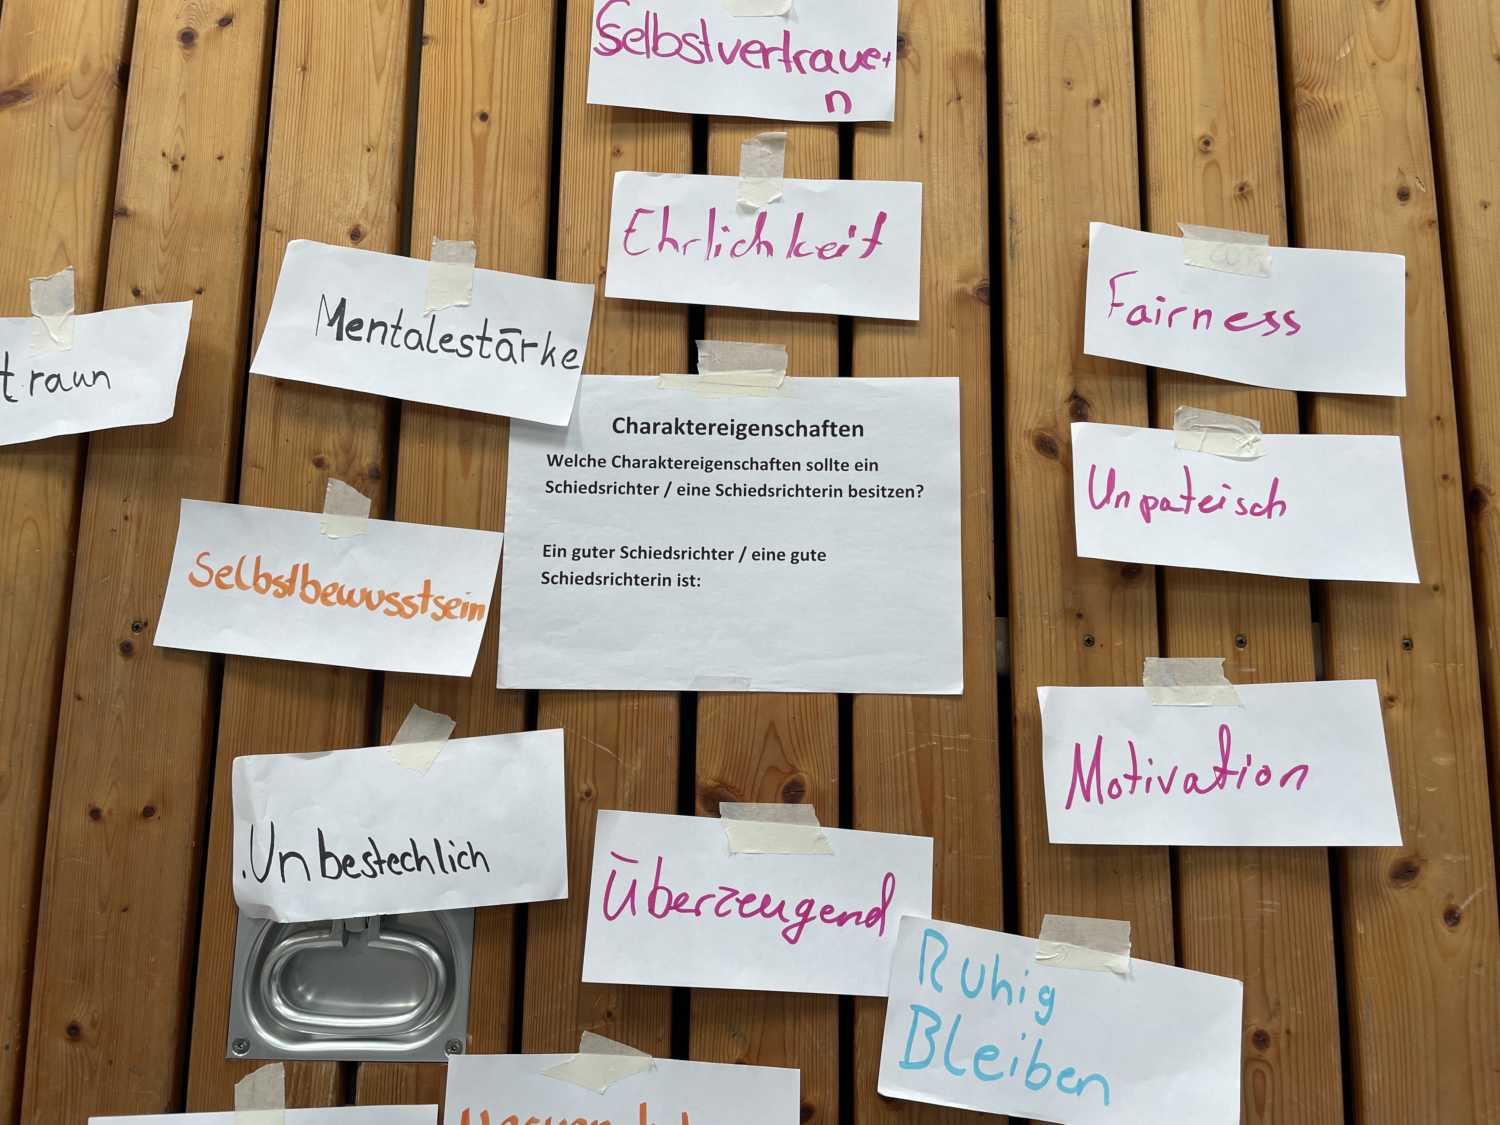 Selbstvertraue
n
Ehrlichkeit
Fairness
Mentalestärke
traun
Charaktereigenschaften
Welche Charaktereigenschaften sollte ein
Schiedsrichter / eine Schiedsrichterin besitzen?
Ein guter Schiedsrichter / eine gute
Schiedsrichterin ist:
Unpateisch
Selbstbewusstsein
Motivation
.Unbestechlich
Überzeugend
Ruhig
Bleiben